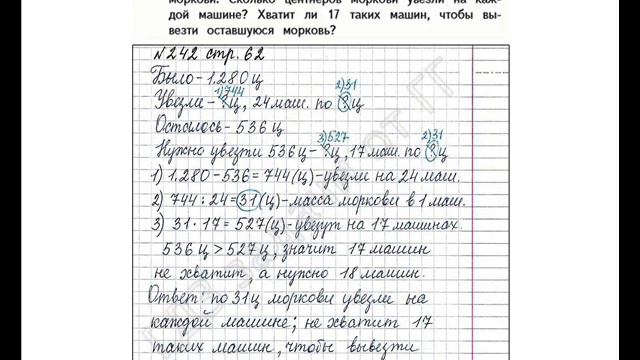 моркови. Сколько центнеров моркови увезли на каж-
дой машине? Хватит ли 17 таких машин, чтобы вы-
везти оставшуюся морковь?
№242 стр. 62
Было - 1.280 ц
1)744 2)31
Увезли - ? ц, 24 маш. по ? ц
Осталось - 536 ц
3)527 2)31
Нужно увезти 536 ц - ? ц, 17 маш. по ? ц
1) 1.280 - 536 = 744 (ц) - увезли на 24 маш.
2) 744 : 24 = 31 (ц) - масса моркови в 1 маш.
3) 31 · 17 = 527 (ц) - увезут на 17 машинах.
536 ц > 527 ц, значит 17 машин
не хватит, а нужно 18 машин.
Ответ: по 31 ц моркови увезли на
каждой машине; не хватит 17
таких машин, чтобы вывезти